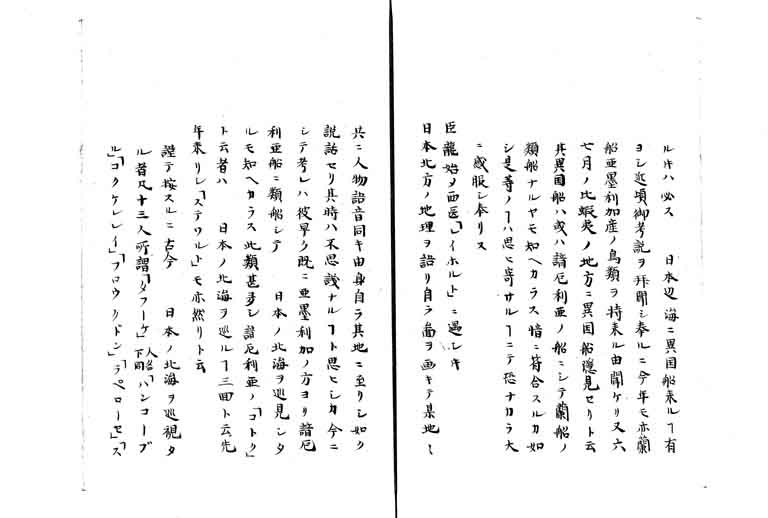 ルキハ必ス　日本辺海ニ異国船来ルヿ有
ヨシ近頃御考説ヲ拝聞シ奉ルニ今年モ亦蘭
船亜墨利加産ノ鳥類ヲ持来ル由聞ケリ又六
七月ノ比蝦夷ノ地方ニ異国船隠見セリト云
其異国船ハ或ハ諳厄利亜ノ船ニシテ蘭船ノ
類船ナルヤモ知ヘカラス暗ニ符合スルカ如
シ是等ノヿハ思ヒ寄サルヿニテ恐ナカラ大
ニ感服シ奉リス
臣龍始ヲ西医「イホルト」ニ遇シキ
日本北方ノ地理ヲ語リ自ラ圖ヲ画キテ某地〱
共ニ人物語音同キ由身自ラ其地ニ至リシ如ク
説話セリ其時ハ不思議ナルヿト思ヒシカ今ニ
シテ考レハ彼早ク既ニ亜墨利加ノ方ヨリ諳厄
利亜船ニ類船シテ　日本ノ北海ヲ巡見シタ
ルモ知ヘカラス此類甚多シ諳厄利亜ノ「コトク」
ト云者ハ　日本ノ北海ヲ巡ルヿ三回ト云先
年来リシ「ステワルト」モ亦然リト云
謹テ按スルニ古今　日本ノ北海ヲ巡視タ
ル者凡十三人所謂「タフーケ」人名下同「バンコーブ
ル」「コクケレレイ」「フロウクトン」「ラペローセ」「ス